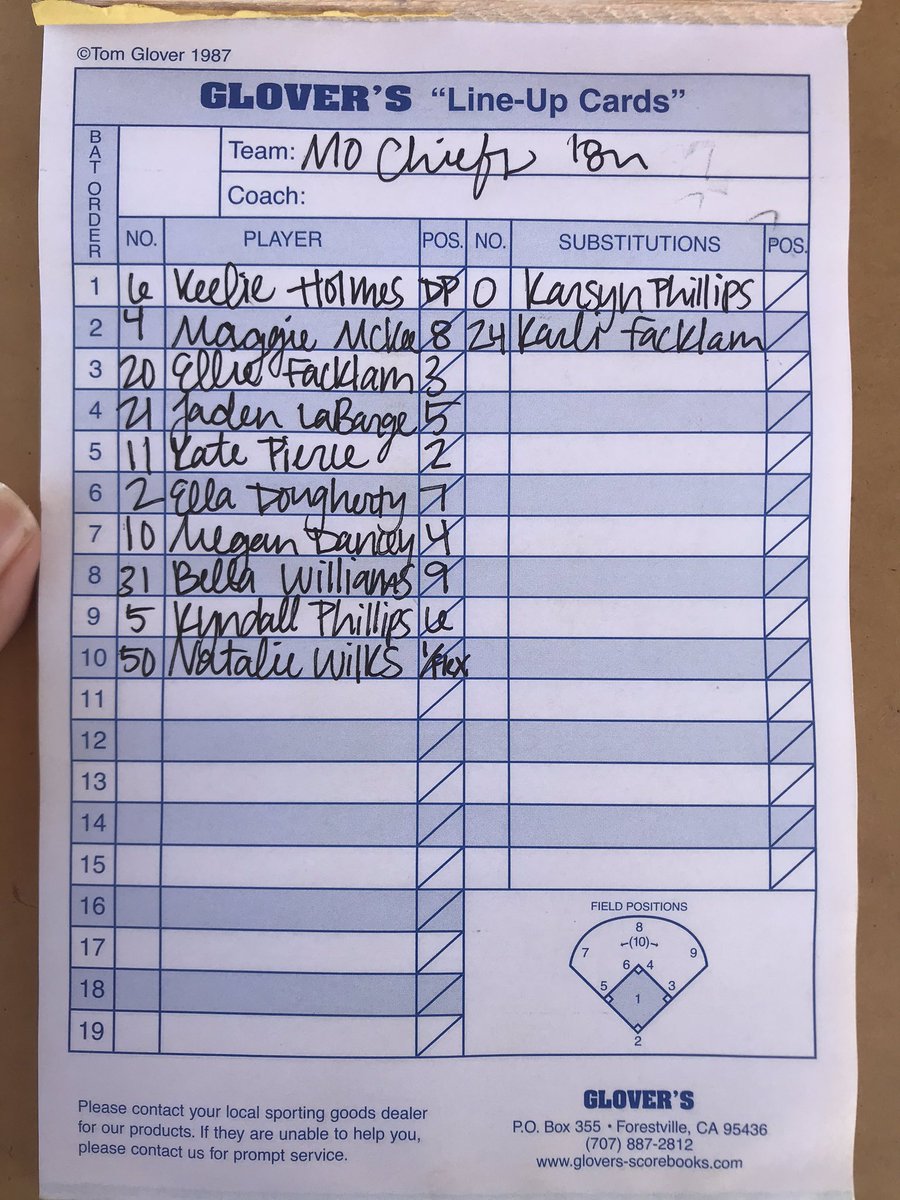 ©Tom Glover 1987
GLOVER'S "Line-Up Cards"
BAT ORDER
Team: MO Chiefs 18u
Coach:
NO. PLAYER POS. NO. SUBSTITUTIONS POS.
1 6 Keelie Holmes DP 0 Karsyn Phillips
2 4 Maggie McKee 8 24 Karli Facklam
3 20 Ellie Facklam 3
4 21 Jaden LaBarge 5
5 11 Kate Pierce 2
6 2 Ella Dougherty 7
7 10 Megan Dancey 4
8 31 Bella Williams 9
9 5 Kyndall Phillips 6
10 50 Natalie Wilks 1/Flex
11
12
13
14
15
16
17
18
19
FIELD POSITIONS
8
(10)
7 9
6 4
5 3
1
2
Please contact your local sporting goods dealer
for our products. If they are unable to help you,
please contact us for prompt service.
GLOVER'S
P.O. Box 355 • Forestville, CA 95436
(707) 887-2812
www.glovers-scorebooks.com